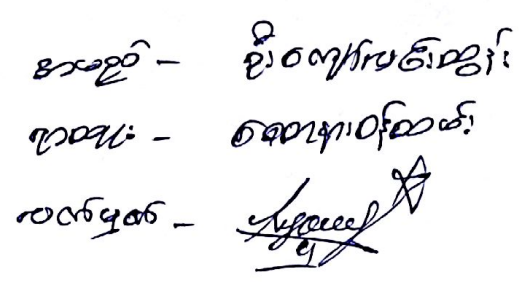 အမည် - ဦးကျော်လင်းထွန်း
ရာထူး - စေတနာ့ဝန်ထမ်း
လက်မှတ် -